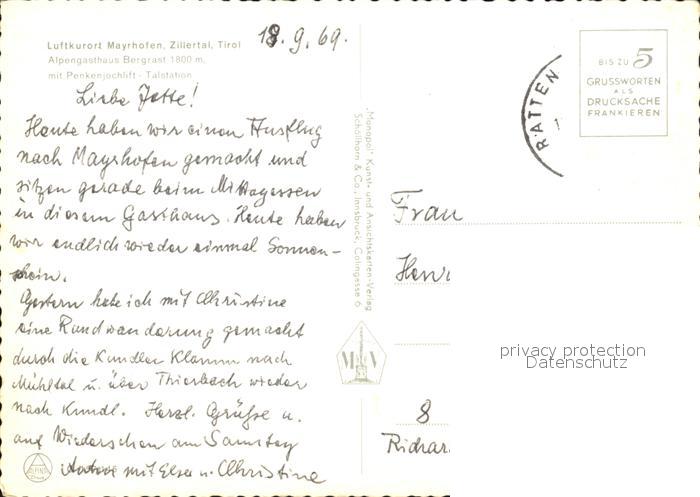 18.9.69.
Luftkurort Mayrhofen, Zillertal, Tirol
Alpengasthaus Bergrast 1800 m,
mit Penkenjochlift - Talstation
Liebe Jette!
Heute haben wir einen Ausflug
nach Mayrhofen gemacht und
sitzen gerade beim Mittagessen
in diesem Gasthaus. Heute haben
wir endlich wieder einmal Sonnen-
schein.
Gestern habe ich mit Christine
eine Rundwanderung gemacht
durch die Kundler Klamm nach
Mühltal u. über Thierbach wieder
nach Kundl. Herzl. Grüße u.
auf Wiedersehen am Samstag
mit Elser u. Christine
"Monopol" Kunst- und Ansichtskarten-Verlag
Schöllhorn & Co., Innsbruck, Colingasse 6
M V
RATTEN
BIS ZU 5
GRUSSWORTEN
ALS
DRUCKSACHE
FRANKIEREN
Frau
privacy protection
Datenschutz
8
Richar